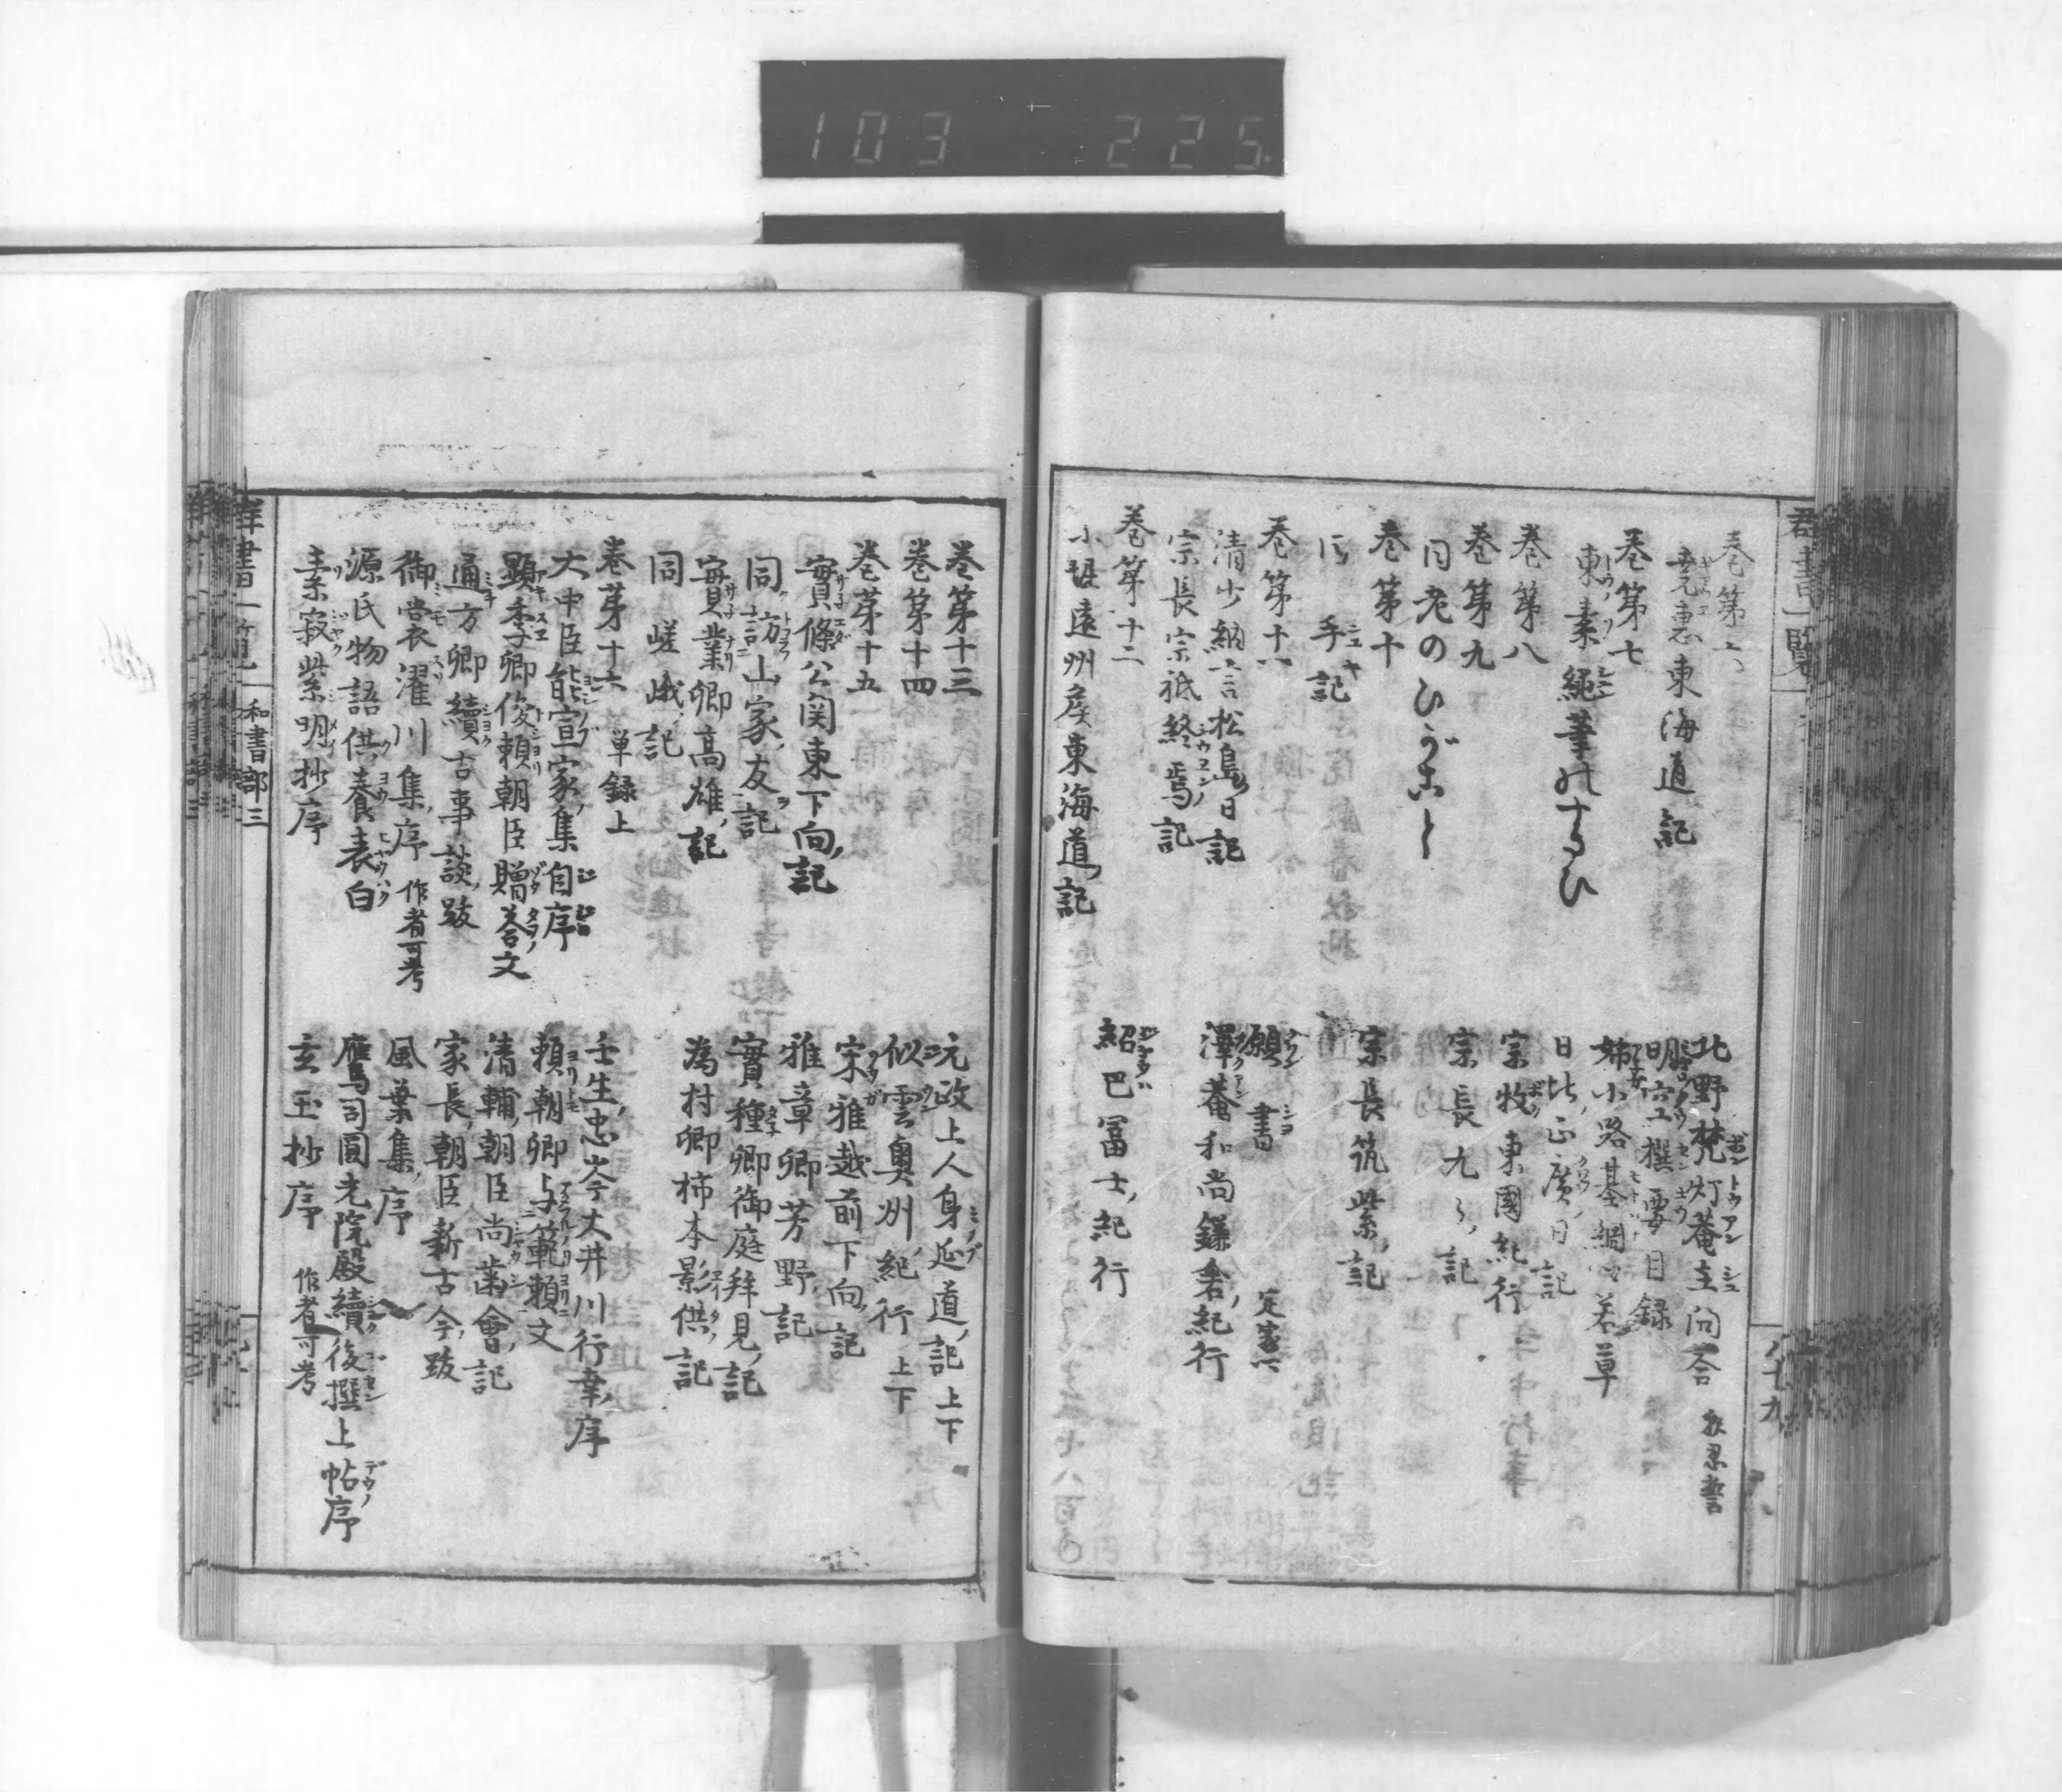 103 225
群書一覧
八十九
巻第六 北野梵灯菴主問荅
尭恵東海道記 明空撰要目録
巻第七 姉小路基綱卿若草
東素純筆のすさひ 日比正廣日記
巻第八 宗牧東國紀行
巻第九 宗長九〻記
同老のひがこと
巻第十 宗長筑紫記
同 手記
巻第十一 願書 定家卿
清少納言松島日記 澤菴和尚鎌倉紀行
宗長宗祇終焉記
巻第十二 紹巴冨士紀行
小堀遠州矦東海道記
巻第十三 元政上人身延道記 上下
巻第十四 似雲奥州紀行 上下
巻第十五 宋雅越前下向記
實條公関東下向記 雅章卿芳野記
同訪山家友記 實種卿御庭拜見記
實業卿高雄記 為村卿柿本影供記
同嵯峨記
巻第十六 単録上 壬生忠岑大井川行幸序
大中臣能宣家集自序 頼朝卿与範頼文
顕季卿俊頼朝臣贈荅文 清輔朝臣尚歯會記
通方卿續古事談跋 家長朝臣新古今跋
御裳濯川集序 作者可考 風葉集序
源氏物語供養表白 鷹司圓光院殿續後撰上帖序
素寂紫明抄序 玄玉抄序 作者可考
群書一覧
和書部三
九十